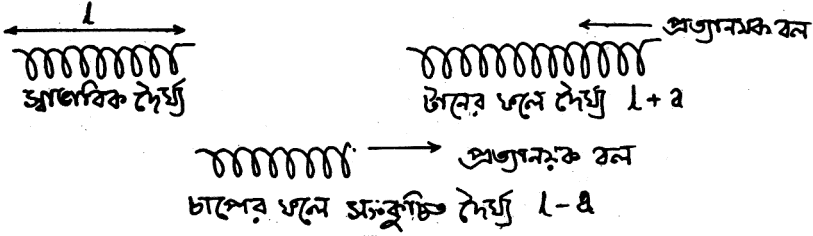 l
স্বাভাবিক দৈর্ঘ্য
প্রত্যানয়ক বল
টানের ফলে দৈর্ঘ্য l + a
প্রত্যানয়ক বল
চাপের ফলে সংকুচিত দৈর্ঘ্য l - a